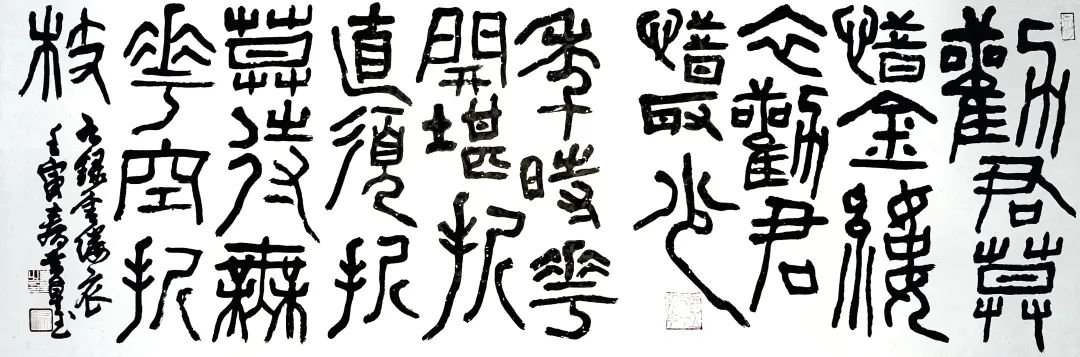 勸君莫
惜金縷
衣勸君
惜取少
年時花
開堪折
直須折
莫待無
花空折
枝
右錄金縷衣
壬寅春